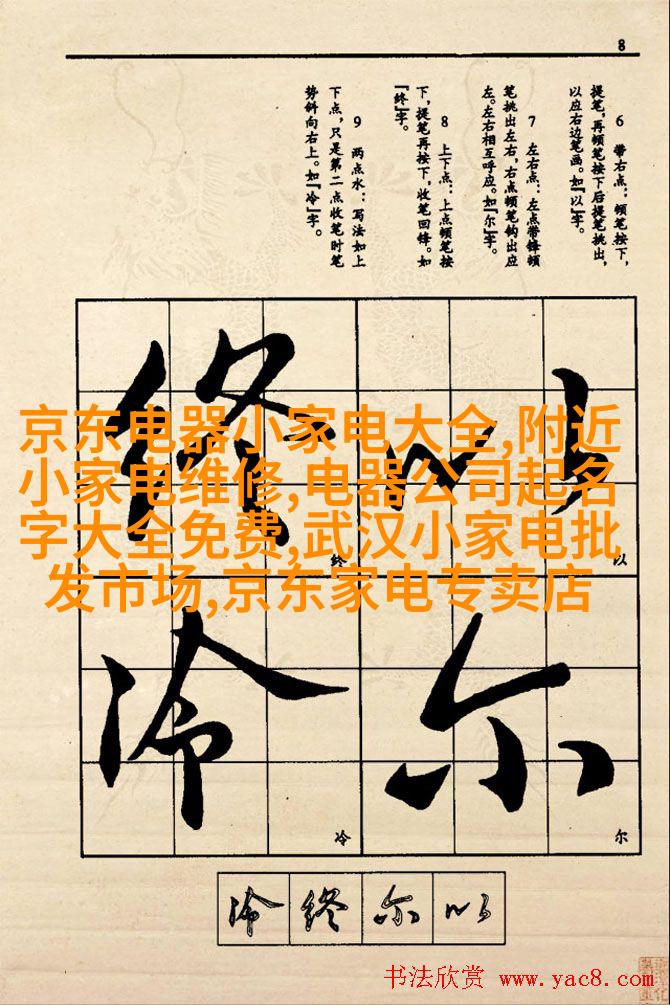 8
6　带右点：顿笔按下，
提笔，再顿笔按下后提笔挑出，
以应右边笔画。如『以』字。
7　左右点：左点带锋顿
笔挑出左右，右点顿笔钩出应
左。左右相互呼应。如『尔』字。
8　上下点：上点顿笔按
下，提笔再按下，收笔回锋。如
『终』字。
9　两点水：写法如上
下点，只是第二点收笔时笔
势斜向右上。如『冷』字。
以
终
以
终
京东电器小家电大全,附近
小家电维修,电器公司起名
字大全免费,武汉小家电批
发市场,京东家电专卖店
尔
冷
尔
冷
冷 终 尔 以
书法欣赏 www.yac8.com